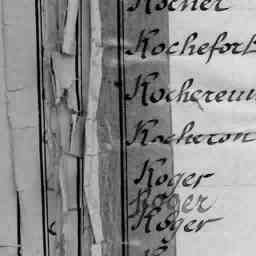 Rocher
Rochefort
Rochereuil
Rocheron
Roger
Roger
Roger